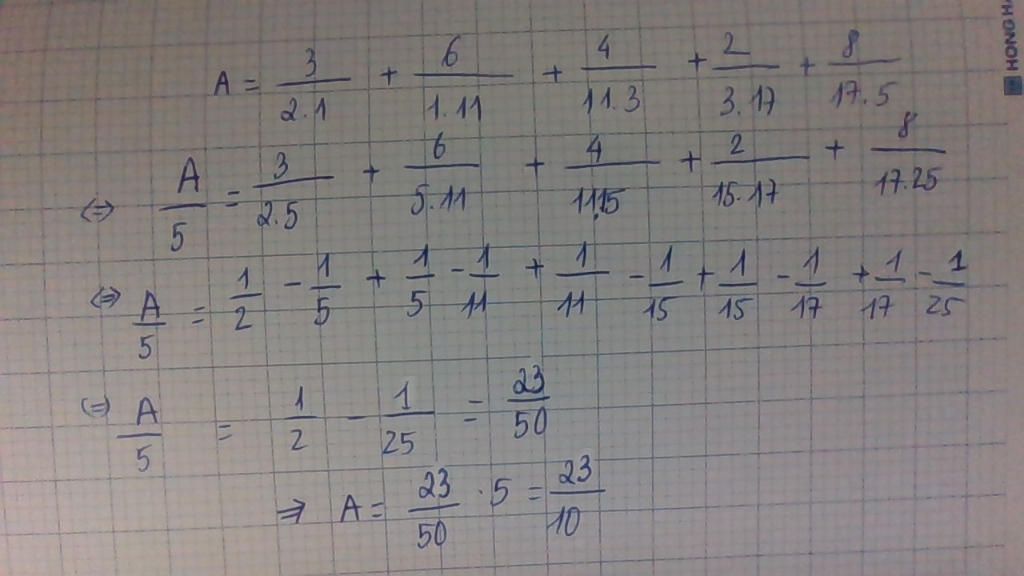 A = 3/2.1 + 6/1.11 + 4/11.3 + 2/3.17 + 8/17.5
⇔ A/5 = 3/2.5 + 6/5.11 + 4/11.15 + 2/15.17 + 8/17.25
⇔ A/5 = 1/2 - 1/5 + 1/5 - 1/11 + 1/11 - 1/15 + 1/15 - 1/17 + 1/17 - 1/25
⇔ A/5 = 1/2 - 1/25 = 23/50
⇒ A = 23/50 . 5 = 23/10
HONG HA